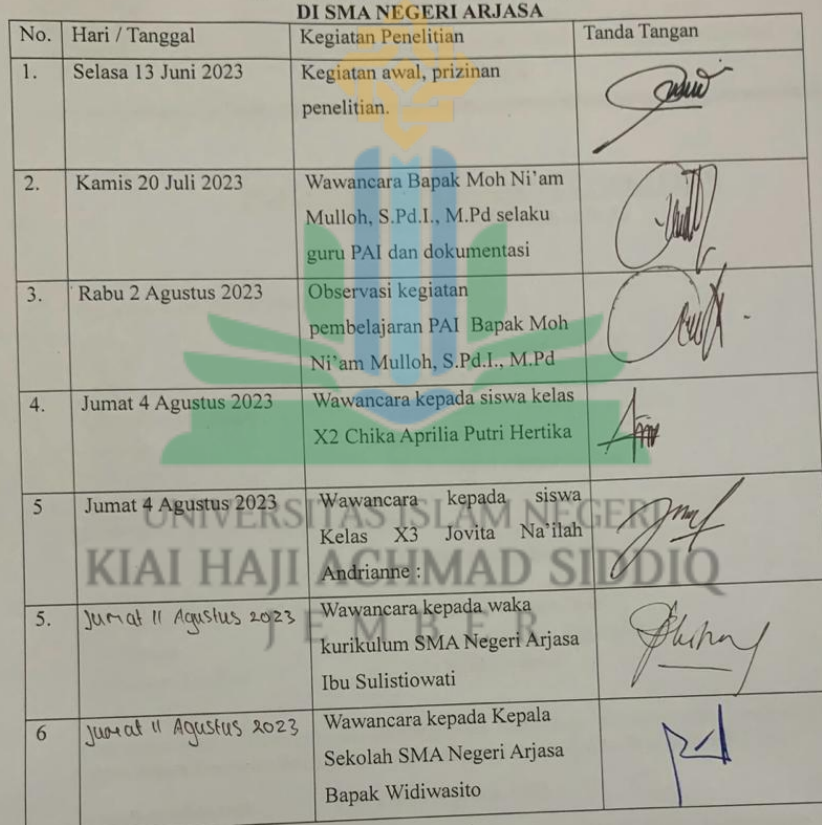 DI SMA NEGERI ARJASA
No. Hari / Tanggal Kegiatan Penelitian Tanda Tangan
1. Selasa 13 Juni 2023 Kegiatan awal, prizinan
penelitian.
2. Kamis 20 Juli 2023 Wawancara Bapak Moh Ni'am
Mulloh, S.Pd.I., M.Pd selaku
guru PAI dan dokumentasi
3. Rabu 2 Agustus 2023 Observasi kegiatan
pembelajaran PAI Bapak Moh
Ni'am Mulloh, S.Pd.I., M.Pd
4. Jumat 4 Agustus 2023 Wawancara kepada siswa kelas
X2 Chika Aprilia Putri Hertika
5 Jumat 4 Agustus 2023 Wawancara kepada siswa
Kelas X3 Jovita Na'ilah
Andrianne :
5. Jumat 11 Agustus 2023 Wawancara kepada waka
kurikulum SMA Negeri Arjasa
Ibu Sulistiowati
6 Jumat 11 Agustus 2023 Wawancara kepada Kepala
Sekolah SMA Negeri Arjasa
Bapak Widiwasito
UNIVERSITAS ISLAM NEGERI
KIAI HAJI ACHMAD SIDDIQ
JEMBER